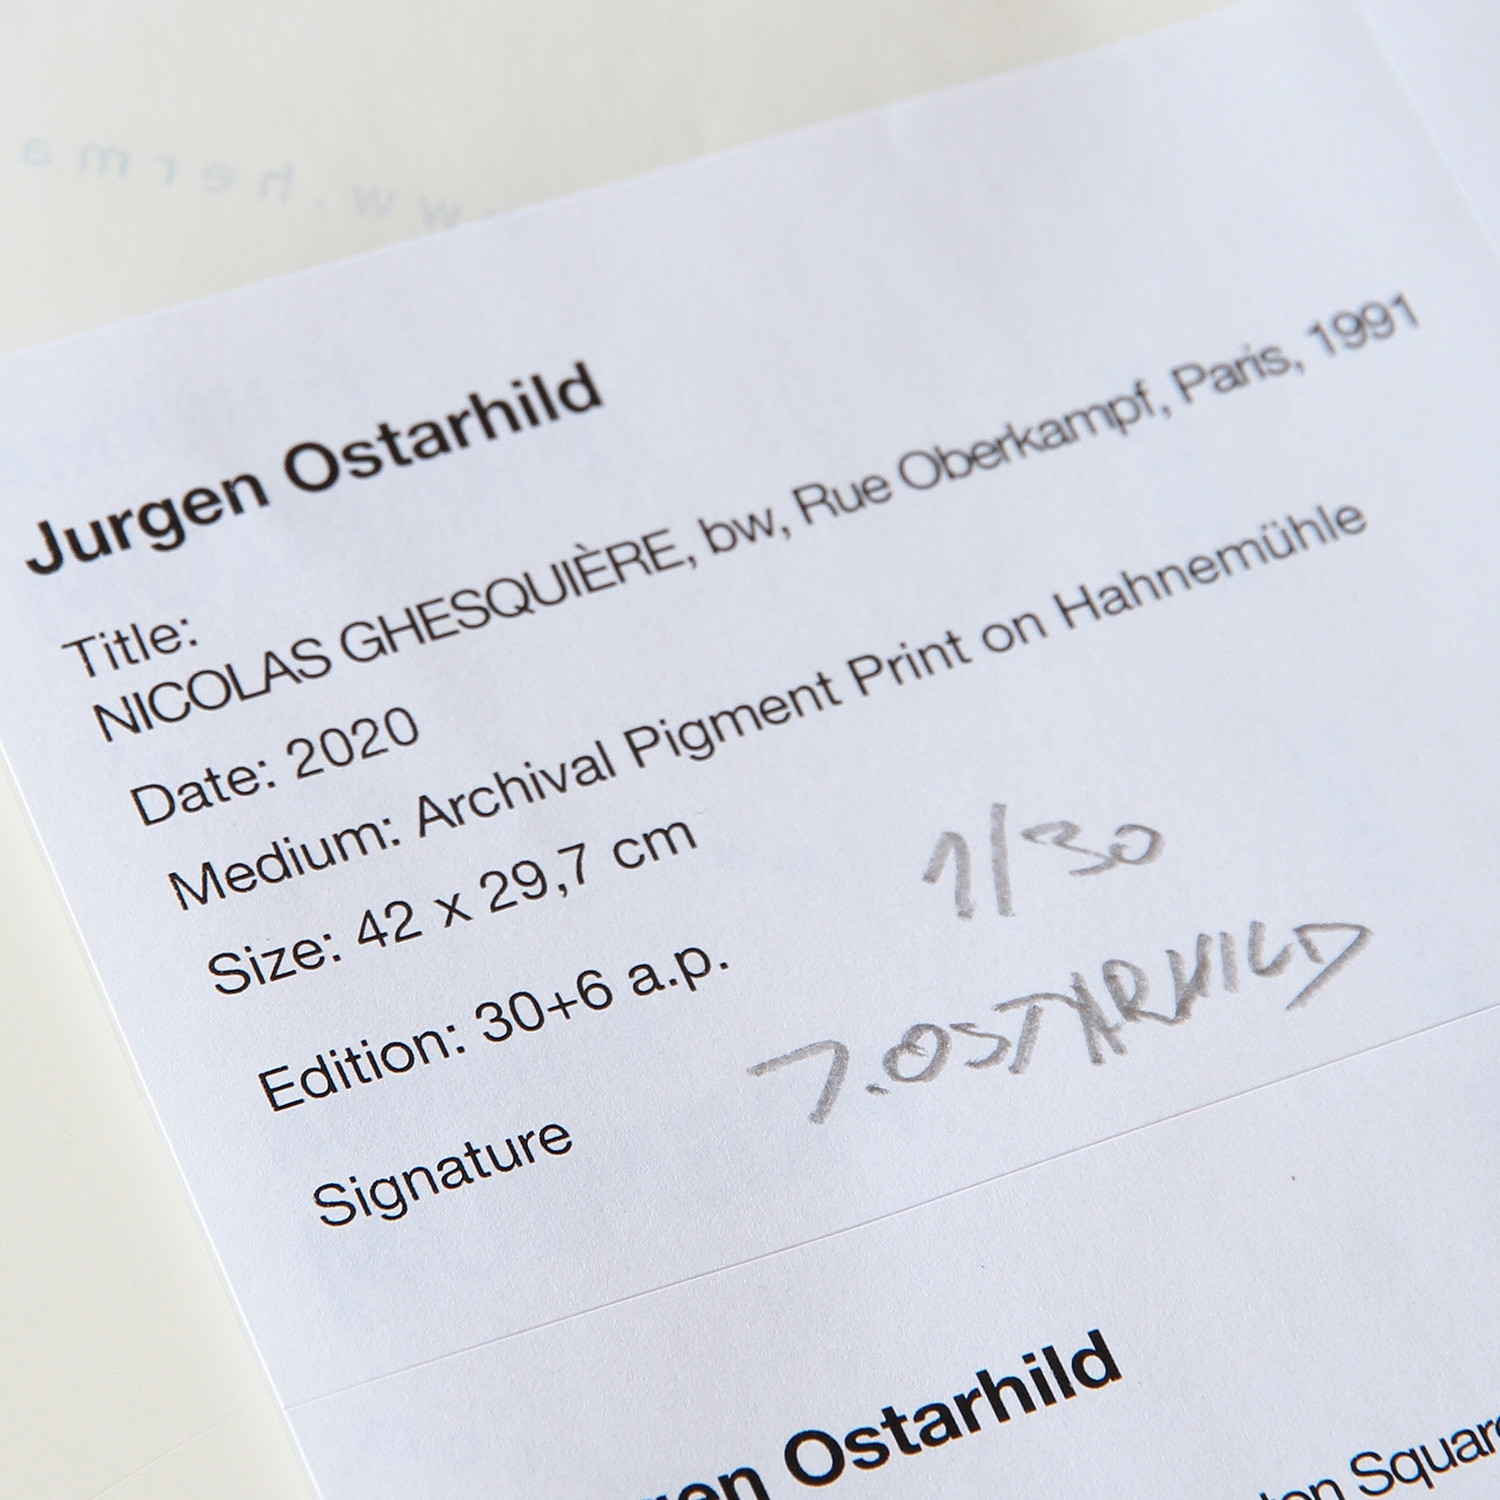 www.herma
Jurgen Ostarhild
Title:
NICOLAS GHESQUIÈRE, bw, Rue Oberkampf, Paris, 1991
Date: 2020
Medium: Archival Pigment Print on Hahnemühle
Size: 42 x 29,7 cm
Edition: 30+6 a.p.
1/30
Signature
J.OSTARHILD
Ostarhild